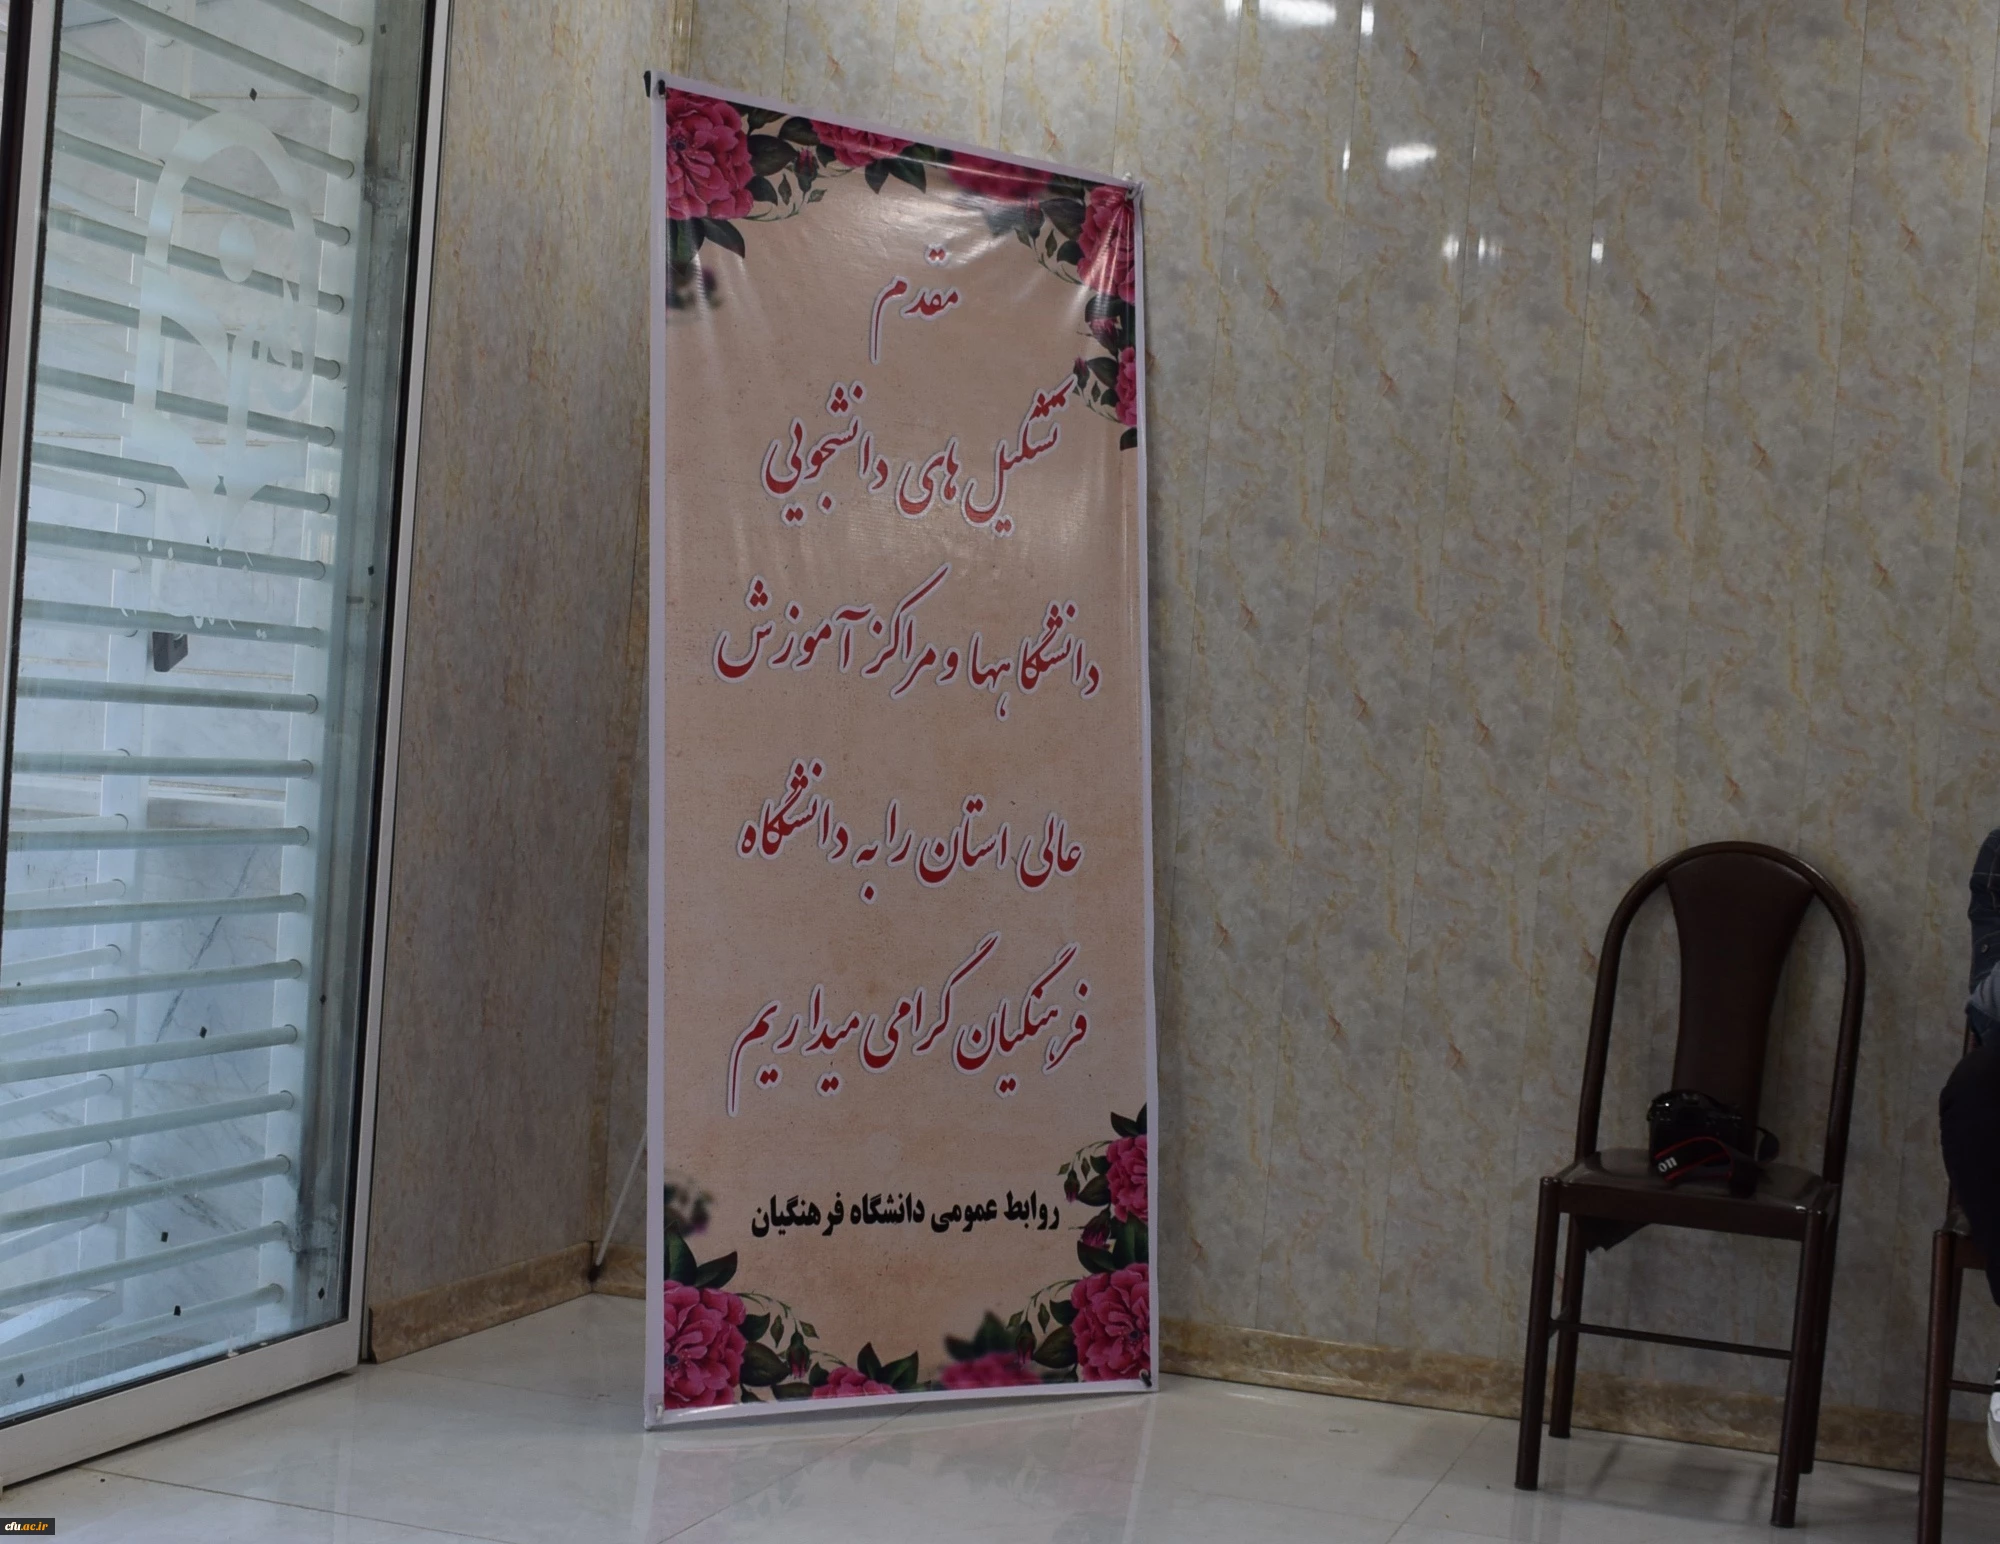 مقدم
تشکیل های دانشجویی
دانشگاهها و مراکز آموزش
عالی استان را به دانشگاه
فرهنگیان گرامی میداریم
روابط عمومی دانشگاه فرهنگیان
on
cfu.ac.ir